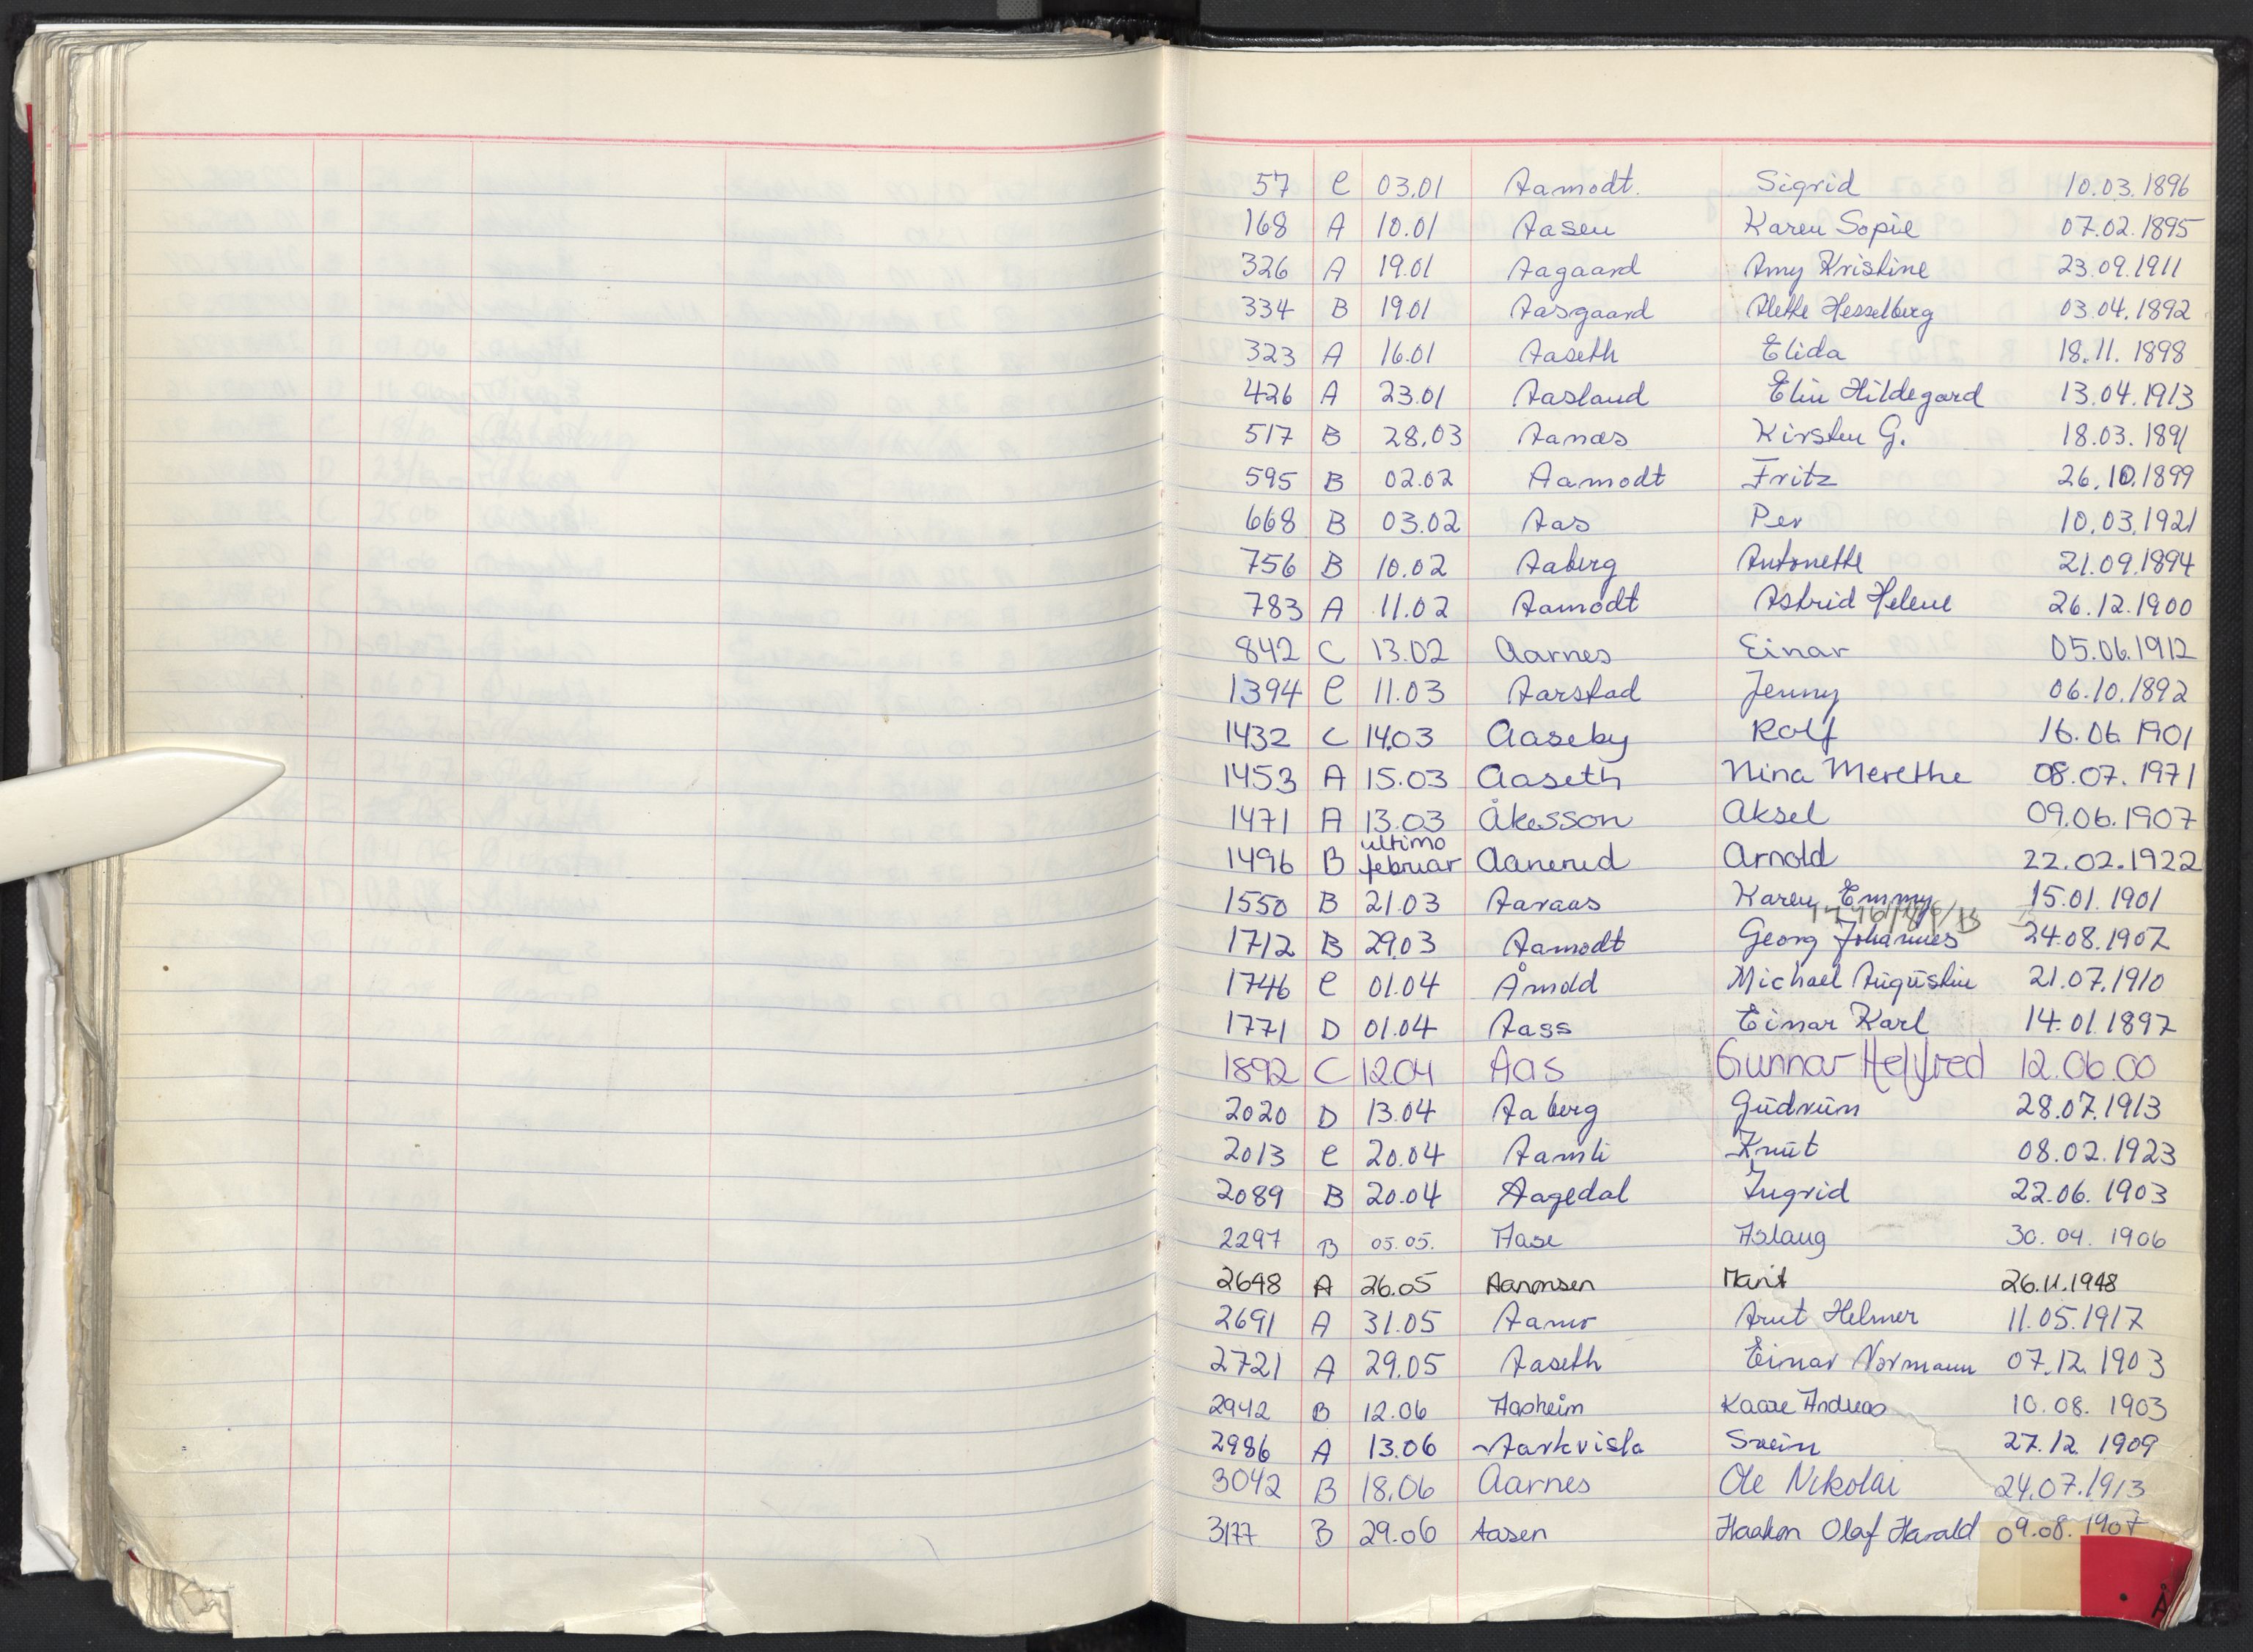 57 C 03.01 Aamodt. Sigrid 10.03.1896
168 A 10.01 Aasen Karen Sopie 07.02.1895
326 A 19.01 Aagaard Amy Kristine 23.09.1911
334 B 19.01 Aasgaard Alette Hesselberg 03.04.1892
323 A 16.01 Aaseth Elida 18.11.1898
426 A 23.01 Aasland Elin Hildegard 13.04.1913
517 B 28.03 Aanæs Kirsten G. 18.03.1891
595 B 02.02 Aamodt Fritz 26.10.1899
668 B 03.02 Aas Per 10.03.1921
756 B 10.02 Aaberg Antonette 21.09.1894
783 A 11.02 Aamodt Astrid Helene 26.12.1900
842 C 13.02 Aarnes Einar 05.06.1912
1394 C 11.03 Aarstad Jenny 06.10.1892
1432 C 14.03 Aaseby Rolf 16.06.1901
1453 A 15.03 Aaseth Nina Merethe 08.07.1971
1471 A 13.03 Åkesson Aksel 09.06.1907
1496 B ultimo februar Aanerud Arnold 22.02.1922
1550 B 21.03 Aaraas Karen Emmy 15.01.1901
1712 B 29.03 Aamodt Georg Johannes 24.08.1907
1746 C 01.04 Åmdd Michael Augustin 21.07.1910
1771 D 01.04 Aass Einar Karl 14.01.1897
1892 C 12.04 Aas Gunnar Helfred 12.06.00
2020 D 13.04 Aaberg Gudrun 28.07.1913
2013 C 20.04 Aamli Knut 08.02.1923
2089 B 20.04 Aagedal Ingrid 22.06.1903
2297 B 05.05. Aase Aslaug 30.04.1906
2648 A 26.05 Aaronsen Marit 26.11.1948
2691 A 31.05 Aamo Arnt Helmer 11.05.1917
2721 A 29.05 Aaseth Einar Normann 07.12.1903
2942 B 12.06 Aasheim Kaare Andreas 10.08.1903
2986 A 13.06 Aarkvisla Svein 27.12.1909
3042 B 18.06 Aarnes Ole Nikolai 24.07.1913
3177 B 29.06 Aasen Haakon Olaf Harald 09.08.1907
Å